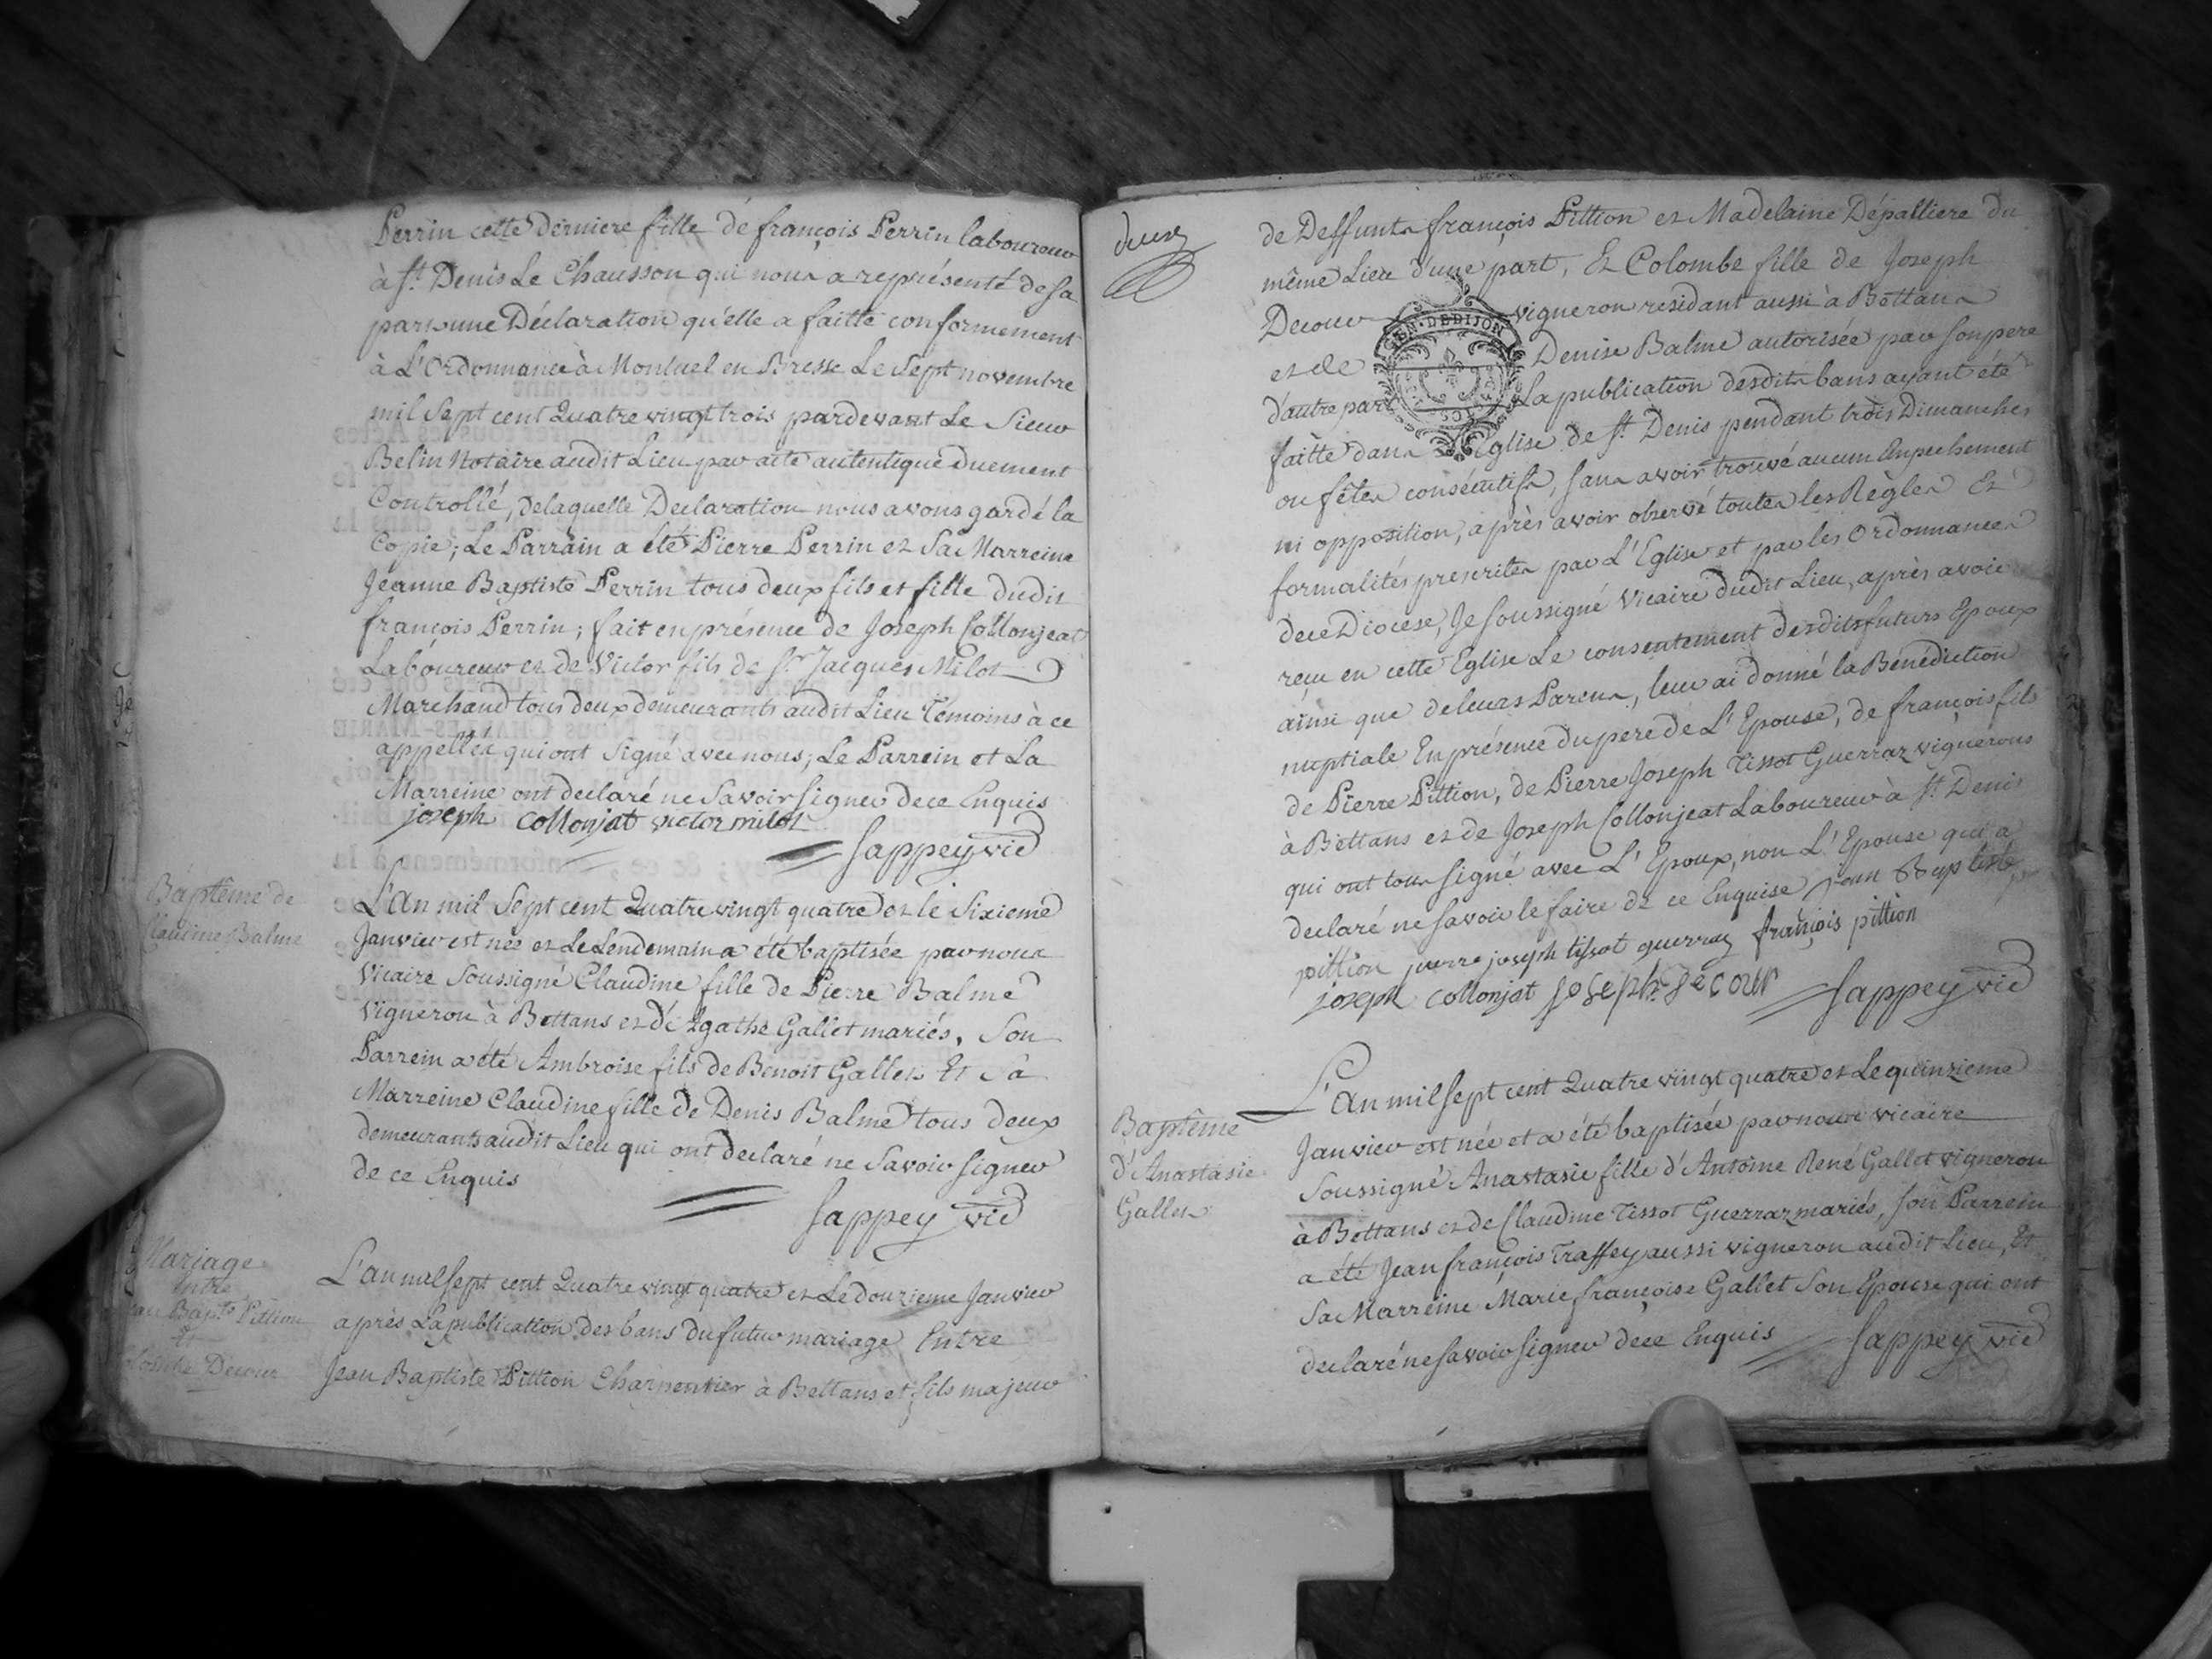 Perrin cette derniere fille de françois Perrin laboureur
à St. Denis Le Chausson qui nous a représenté de sa
part une Déclaration qu'elle a faitte conformement
à L'Ordonnance à Montuel en Bresse Le Sept novembre
mil Sept cent Quatre vingt trois pardevant Le Sieur
Belin Notaire audit Lieu par acte autentique duement
Controllé, de laquelle Declaration nous avons gardé la
Copie; Le Parrain a été Pierre Perrin et Sa Marreine
Jeanne Baptiste Perrin tous deux fils et fille dudit
françois Perrin; fait en présence de Joseph Collonjeat
Laboureur et de Victor fils de Sr. Jacques Milot
Marchand tous deux demeurants audit Lieu Témoins à ce
appellés qui ont Signé avec nous; Le Parrein et La
Marreine ont declaré ne Savoir signer de ce Enquis
joseph collonjat victor milot
Sappey vic
Baptême de
Claudine Balme
L'An mil Sept cent Quatre vingt quatre et le Sixieme
Janvier est née et Le Lendemain a été baptisée par nous
Vicaire Soussigné Claudine fille de Pierre Balme
Vigneron à Bettans et d'Agathe Gallet mariés, Son
Parrein a été Ambroise fils de Benoit Gallet Et Sa
Marreine Claudine fille de Denis Balme tous deux
demeurants audit Lieu qui ont declaré ne Savoir signer
de ce Enquis
Sappey vic
Mariage
Entre
Jean Bapte. Pittion
Et
Colombe Decour
L'an mil sept cent Quatre vingt quatre et Le douzieme Janvier
après La publication des bans du futur mariage Entre
Jean Baptiste Pittion Charpentier à Bettans et fils majeur
deux
de Deffunts françois Pittion et Madelaine Dépalliere du
même Lieu d'une part, Et Colombe fille de Joseph
Decour vigneron residant aussi à Bettans
et de Denise Balme autorisée par son pere
d'autre part La publication desdits bans ayant été
GEN·DE DIJON
faitte dans Eglise de St. Denis pendant trois Dimanches
ou fêtes consécutifs, sans avoir trouvé aucun Empechement
ni opposition, après avoir observé toutes les Règles Et
formalités prescrites par L'Eglise et par les Ordonnances
de ce Diocese, Je soussigné Vicaire dudit Lieu, après avoir
reçu en cette Eglise Le consentement desdits futurs Epoux
ainsi que de leurs Parens, leur ai donné la Bénédiction
nuptiale En présence du pere de L'Epouse, de françois fils
de Pierre Pittion, de Pierre Joseph Tissot Guerraz vignerons
à Bettans et de Joseph Collonjeat Laboureur à St. Denis
qui ont tous signé avec L'Epoux, non L'Epouse qui a
declaré ne savoir le faire de ce Enquise jean Baptiste
pittion pierre joseph tissot guerraz françois pittion
joseph collonjat joseph decour Sappey vic
Baptême
d'Anastasie
Gallet
L'An mil sept cent Quatre vingt quatre et Le quinzieme
Janvier est née et a été baptisée par nous vicaire
Soussigné Anastasie fille d'Antoine René Gallet vigneron
à Bettans et de Claudine Tissot Guerraz mariés, son Parrein
a été Jean françois Traffey aussi vigneron audit Lieu, Et
Sa Marreine Marie françoise Gallet Son Epouse qui ont
declaré ne savoir signer de ce Enquis Sappey vic